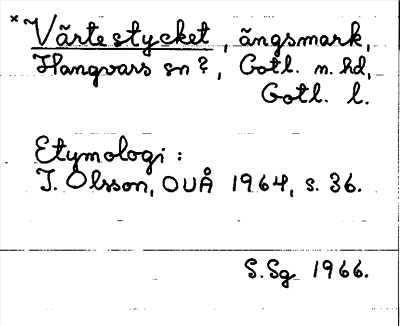 *Värtestycket, ängsmark,
Hangvars sn?, Gotl. n. hd,
Gotl. l.
Etymologi:
I. Olsson, OUÅ 1964, s. 36.
S.Sg 1966.